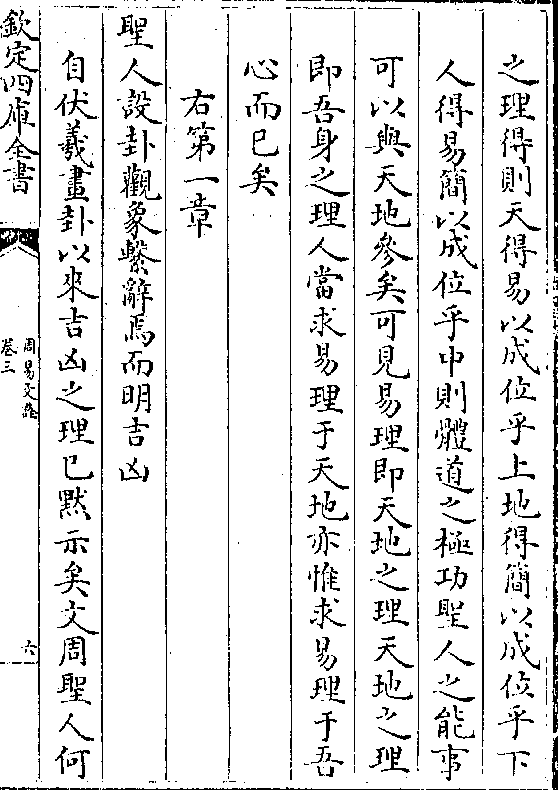 之理得則天得易以成位乎上地得簡以成位乎下
人得易簡以成位乎中則體道之極功聖人之能事
可以與天地參矣可見易理即天地之理天地之理
即吾身之理人當求易理于天地亦惟求易理于吾
心而已矣
右第一章
聖人設卦觀象繫辭焉而明吉凶
自伏羲畫卦以來吉凶之理已黙示矣文周聖人何
欽定四庫全書
周易文詮
卷三
六